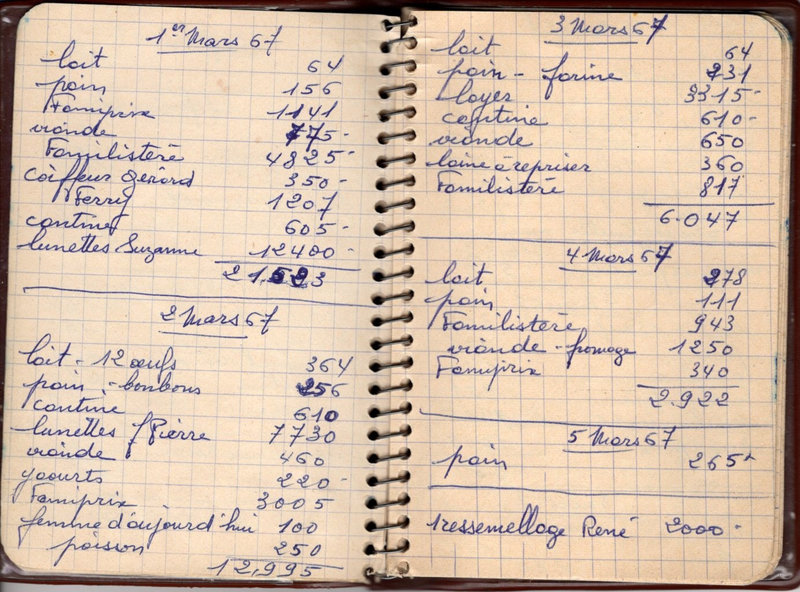 1er Mars 67
lait 64
pain 156
Familiprix 1141
viande 775-
Familistère 4825-
coiffeur Gérard 350-
Ferry 1207
cantine 605-
lunettes Suzanne 12400-
21.523
2 Mars 67
lait - 12 œufs 364
pain - bonbons 256
cantine 610
lunettes J Pierre 7730
viande 460
yaourts 220-
Familiprix 3005
femme d'aujourd'hui 100
poisson 250
12.995
3 Mars 67
lait 64
pain - farine 231
loyer 3315-
cantine 610-
viande 650
laine à repriser 360
Familistère 817
6.047
4 Mars 67
lait 278
pain 111
Familistère 943
viande - fromage 1250
Familiprix 340
2.922
5 Mars 67
pain 265-
1 ressemellage René 2000-